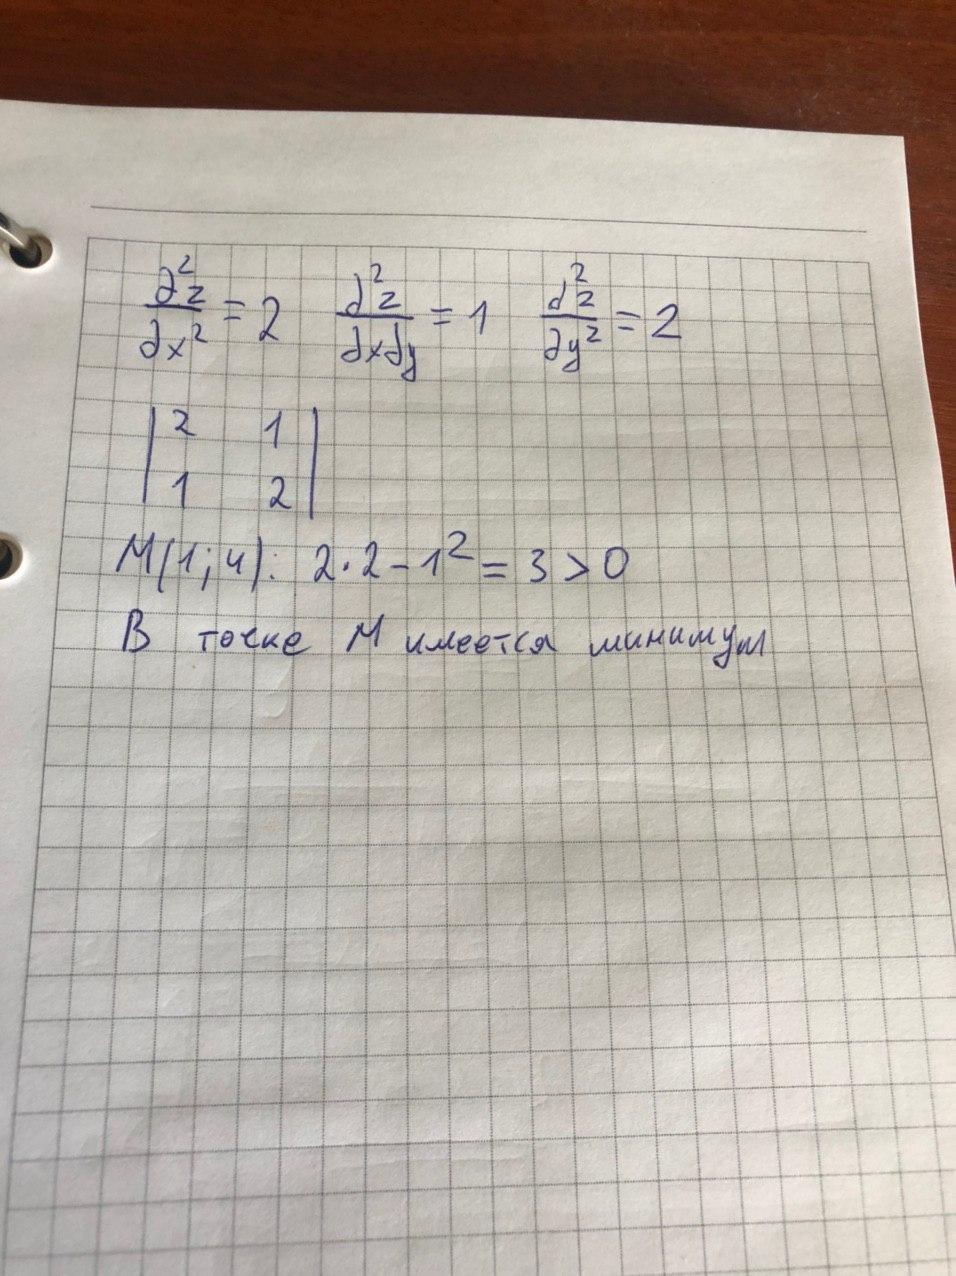 ∂²z/∂x² = 2 ∂²z/∂x∂y = 1 ∂²z/∂y² = 2
| 2 1 |
| 1 2 |
M(1;4): 2·2-1² = 3 > 0
В точке M имеется минимум